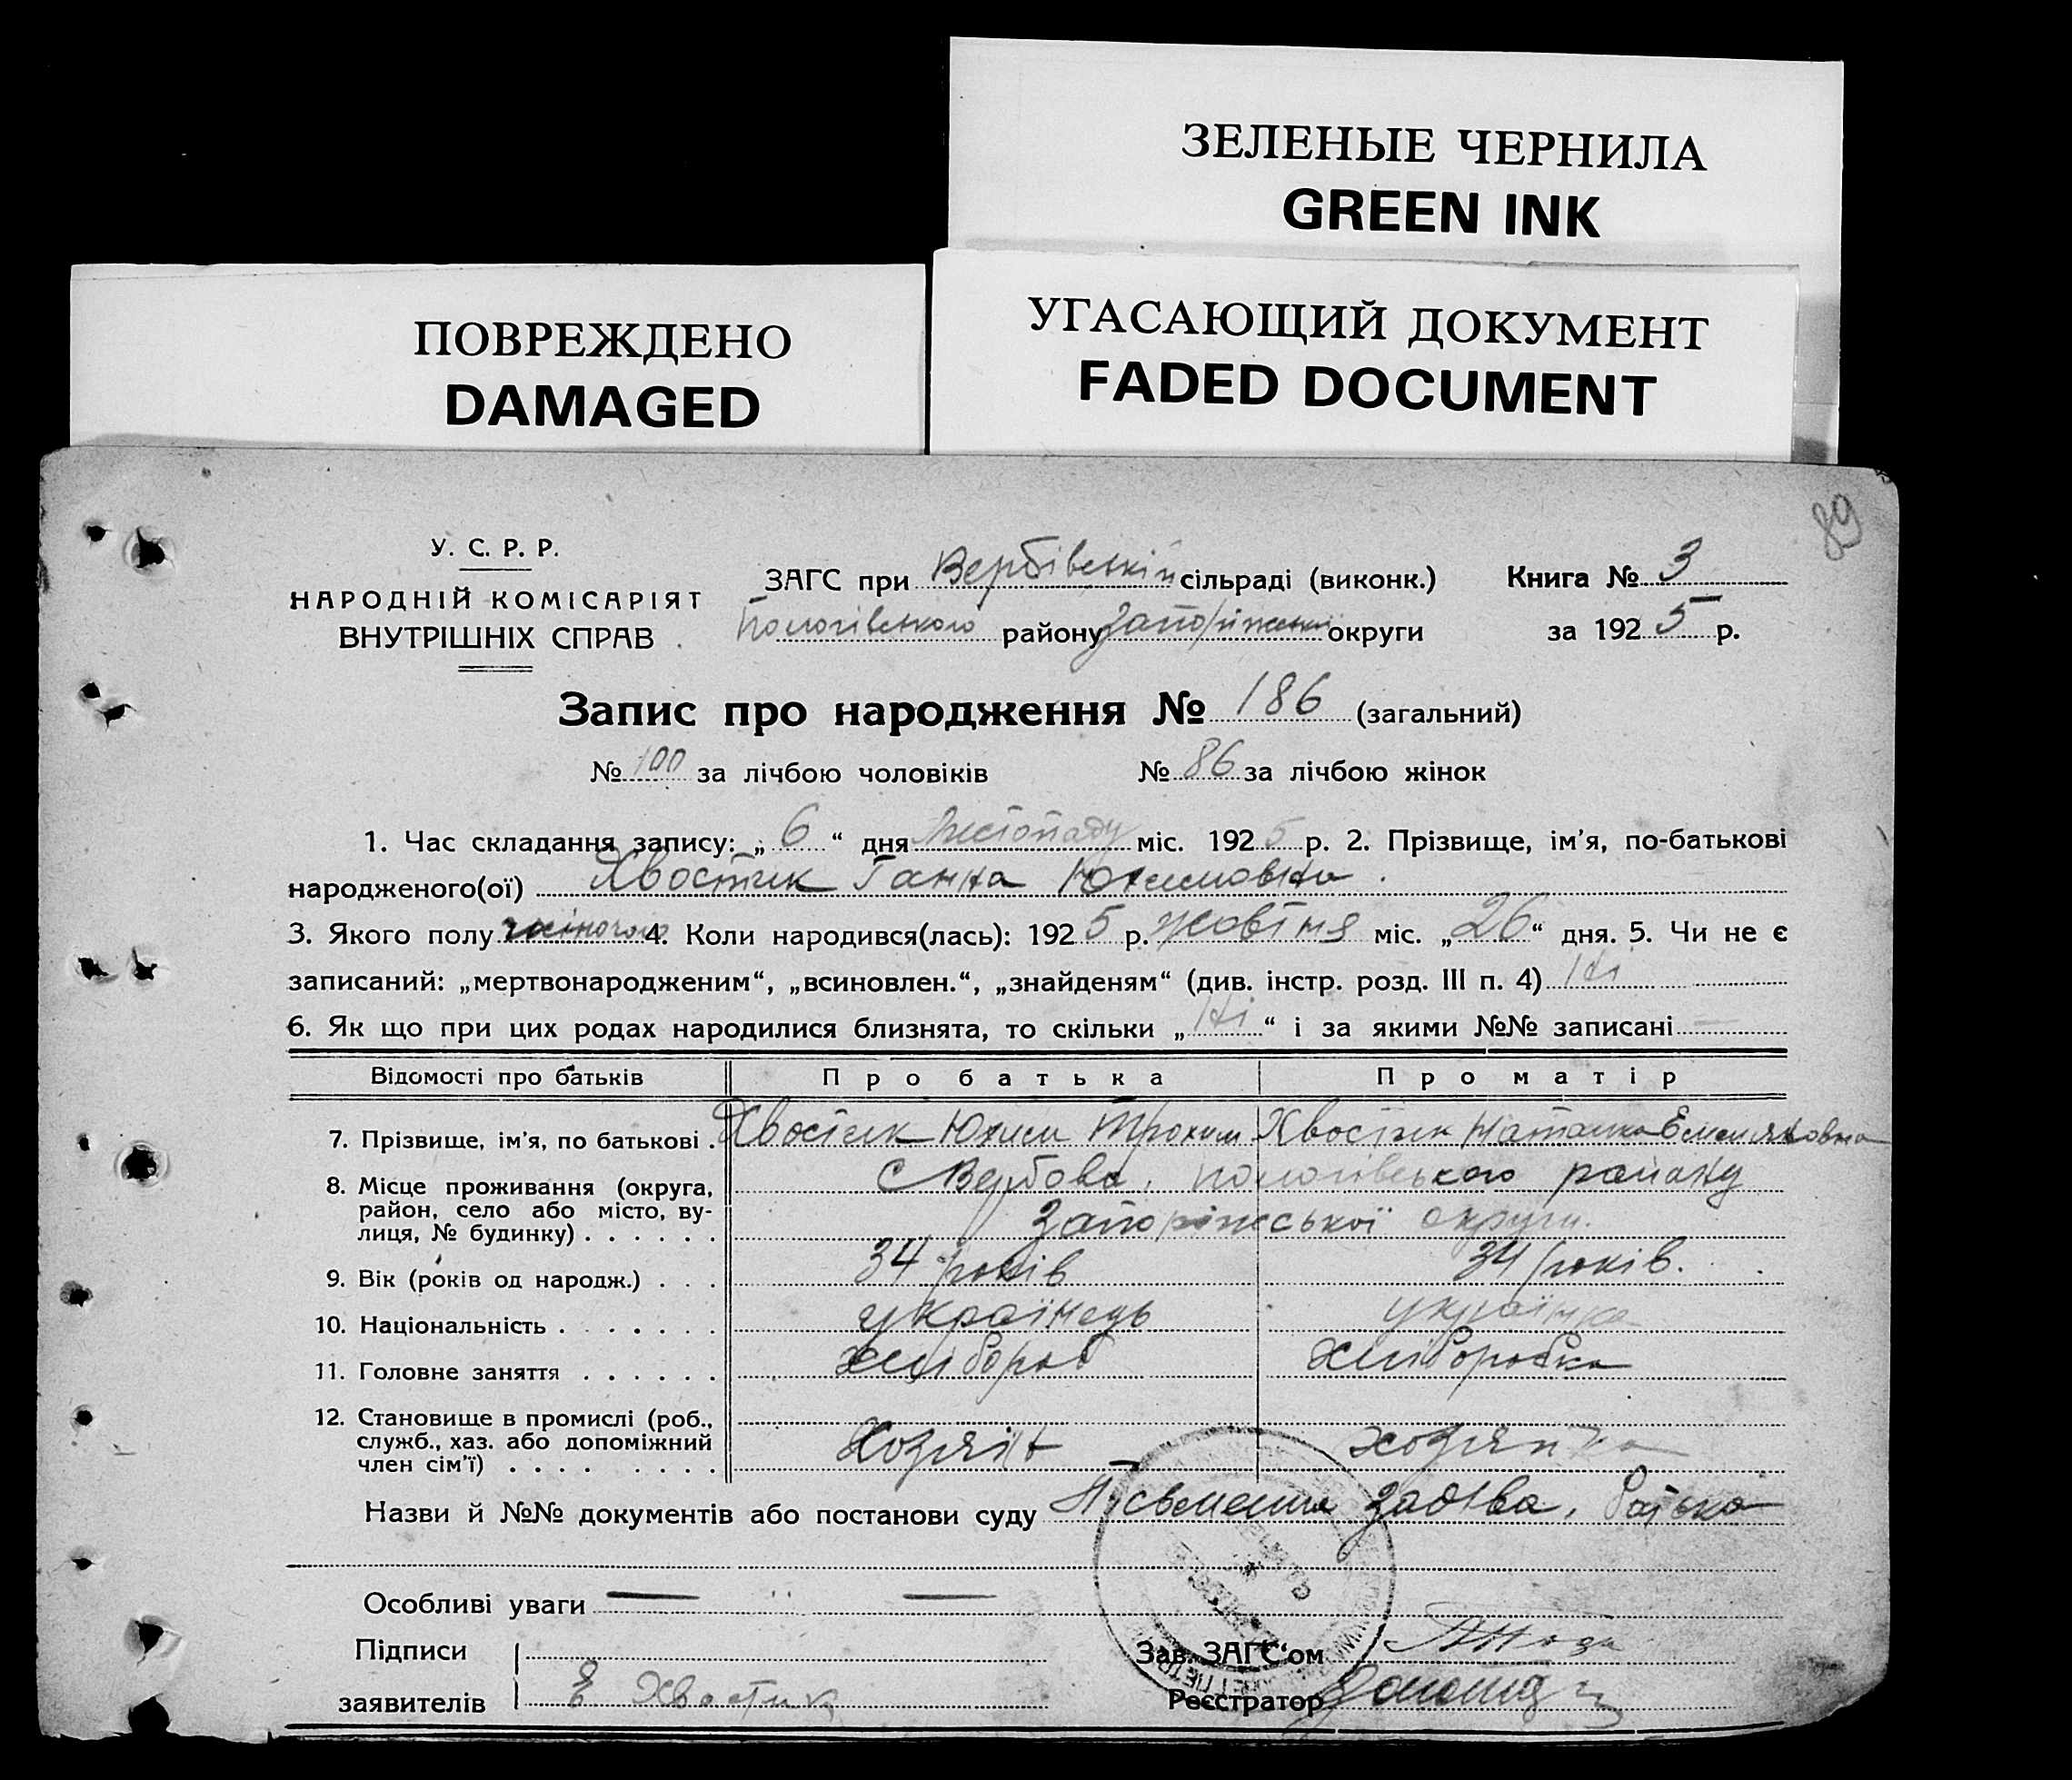 ЗЕЛЕНЫЕ ЧЕРНИЛА
GREEN INK
ПОВРЕЖДЕНО
DAMAGED
УГАСАЮЩИЙ ДОКУМЕНТ
FADED DOCUMENT
89
У. С. Р. Р.
НАРОДНІЙ КОМІСАРІЯТ
ВНУТРІШНІХ СПРАВ
ЗАГС при Вербівській сільраді (виконк.) Книга № 3
Пологівського району Запоріжської округи за 1925 р.
Запис про народження № 186 (загальний)
№ 100 за лічбою чоловіків № 86 за лічбою жінок
1. Час складання запису: „ 6 “ дня Листопаду міс. 1925 р. 2. Прізвище, ім'я, по-батькові
народженого(ої) Хвостик Ганна Юхимовна.
3. Якого полу жіночого 4. Коли народився(лась): 1925 р. жовтня міс. „ 26 “ дня. 5. Чи не є
записаний: „мертвонародженим“, „всиновлен.“, „знайденям“ (див. інстр. розд. III п. 4) Ні
6. Як що при цих родах народилися близнята, то скільки „ Ні “ і за якими №№ записані —
Відомості про батьків Про батька Про матір
7. Прізвище, ім'я, по батькові . Хвостик Юхим Трохим Хвостик Наталка Емельяновна
8. Місце проживання (округа, район, село або місто, вулиця, № будинку) . . . . . . с Вербова, пологівського району
Запоріжської округи.
9. Вік (років од народж.) . . . 34 років 34 років.
10. Національність . . . . . . . українець українка
11. Головне заняття . . . . . . хлібороб хліборобка
12. Становище в промислі (роб., служб., хаз. або допоміжний член сім'ї) . . . . . . . . Хозяїн хозяйка
Назви й №№ документів або постанови суду Письменна заява, батька
Особливі уваги — " —
Підписи
заявителів Е Хвостик
Зав. ЗАГС‘ом
Реєстратор